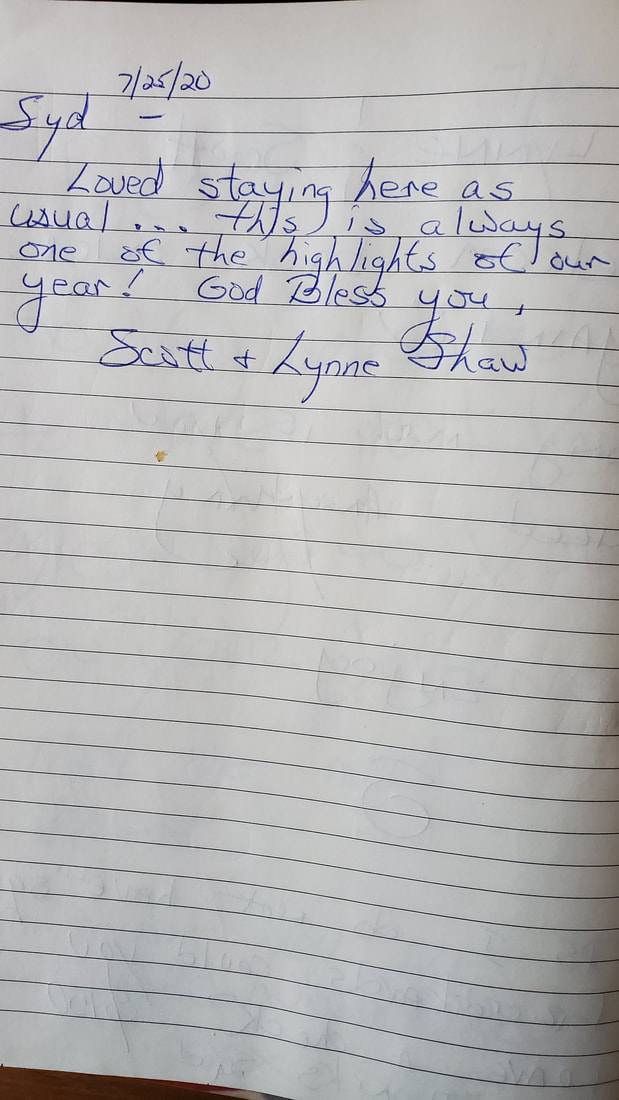 7/25/20
Syd –
Loved staying here as
usual ... this is always
one of the highlights of our
year! God Bless you,
Scott & Lynne Shaw